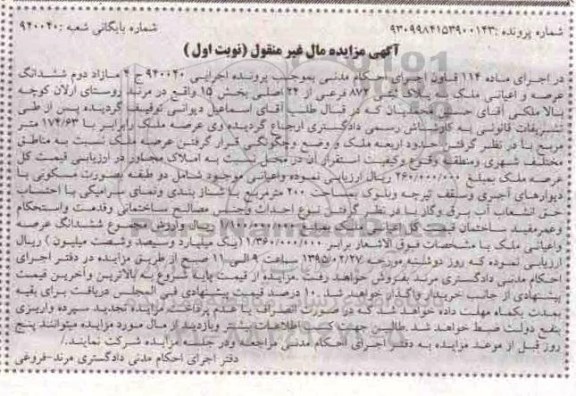 شماره پرونده :۹۳۰۹۹۸۴۱۵۳۹۰۰۱۲۳ شماره بایگانی شعبه :۹۴۰۰۴۰
آگهی مزایده مال غیر منقول (نوبت اول )
در اجرای ماده ۱۱۴ قانون اجرای احکام مدنی بموجب پرونده اجرایی ۹۴۰۰۴۰ ج ۴ مازاد دوم ششدانگ
عرصه و اعیانی ملک به پلاک ثبتی ۸۷۶ فرعی از ۲۴ اصلی بخش ۱۵ واقع در مرند روستای ارلان کوچه
بالا ملکی آقای حسین که در قبال طلب آقای اسماعیل دیوانی توقیف گردیده پس از طی
تشریفات قانونی به کارشناس رسمی دادگستری ارجاع گردیده وی عرصه ملک رابرابر با ۱۷۴/۶۳ متر
مربع با در نظر گرفتن حدود اربعه ملک و وضع وچگونگی قرار گرفتن عرصه ملک نسبت به مناطق
مختلف شهری ومنطقه وقوع وکیفیت استقرار آن در محل نسبت به املاک مجاور در ارزیابی قیمت کل
عرصه ملک بمبلغ ۲۶۰/۰۰۰/۰۰۰ ریال ارزیابی نموده واعیانی موجود شامل دو طبقه بصورت مسکونی با
دیوارهای آجری وسقف تیرچه وبلوک به مساحت ۲۰۰ مترمربع با شناژ بندی ونمای سرامیکی با احتساب
حق انشعاب آب برق وگاز با در نظر گرفتن نوع احداث وجنس مصالح ساختمانی وقدمت واستحکام
وعمرمفید ساختمان قیمت کل اعیانی ملک بمبلغ ریال وارزش مجموع ششدانگ عرصه
واعیانی ملک با مشخصات فوق الاشعار برابر ۱/۳۶۰/۰۰۰/۰۰۰ (یک میلیارد وسیصد وشصت میلیون ) ریال
ارزیابی نموده که روز دوشنبه مورخه ۱۳۹۵/۰۲/۲۷ ساعت ۹ الی ۱۱ صبح از طریق مزایده در دفتر اجرای
احکام مدنی دادگستری مرند بفروش خواهد رفت. مزایده از قیمت پایه شروع به بالاترین وآخرین قیمت
پیشنهادی از جانب خریدار واگذار خواهد شد . ۱۰ درصد قیمت پیشنهادی فی المجلس دریافت برای بقیه
بمدت یکماه مهلت داده خواهد شد که در صورت انصراف یا عدم پرداخت مزایده تجدید سپرده واریزی
بنفع دولت ضبط خواهد شد .طالبین جهت کسب اطلاعات بیشتر وبازدید از مال مورد مزایده میتوانند پنج
روز قبل از موعد مزایده به دفتر اجرای احکام مدنی مراجعه ودر جلسه مزایده شرکت نمایند./
دفتر اجرای احکام مدنی دادگستری مرند-فروغی